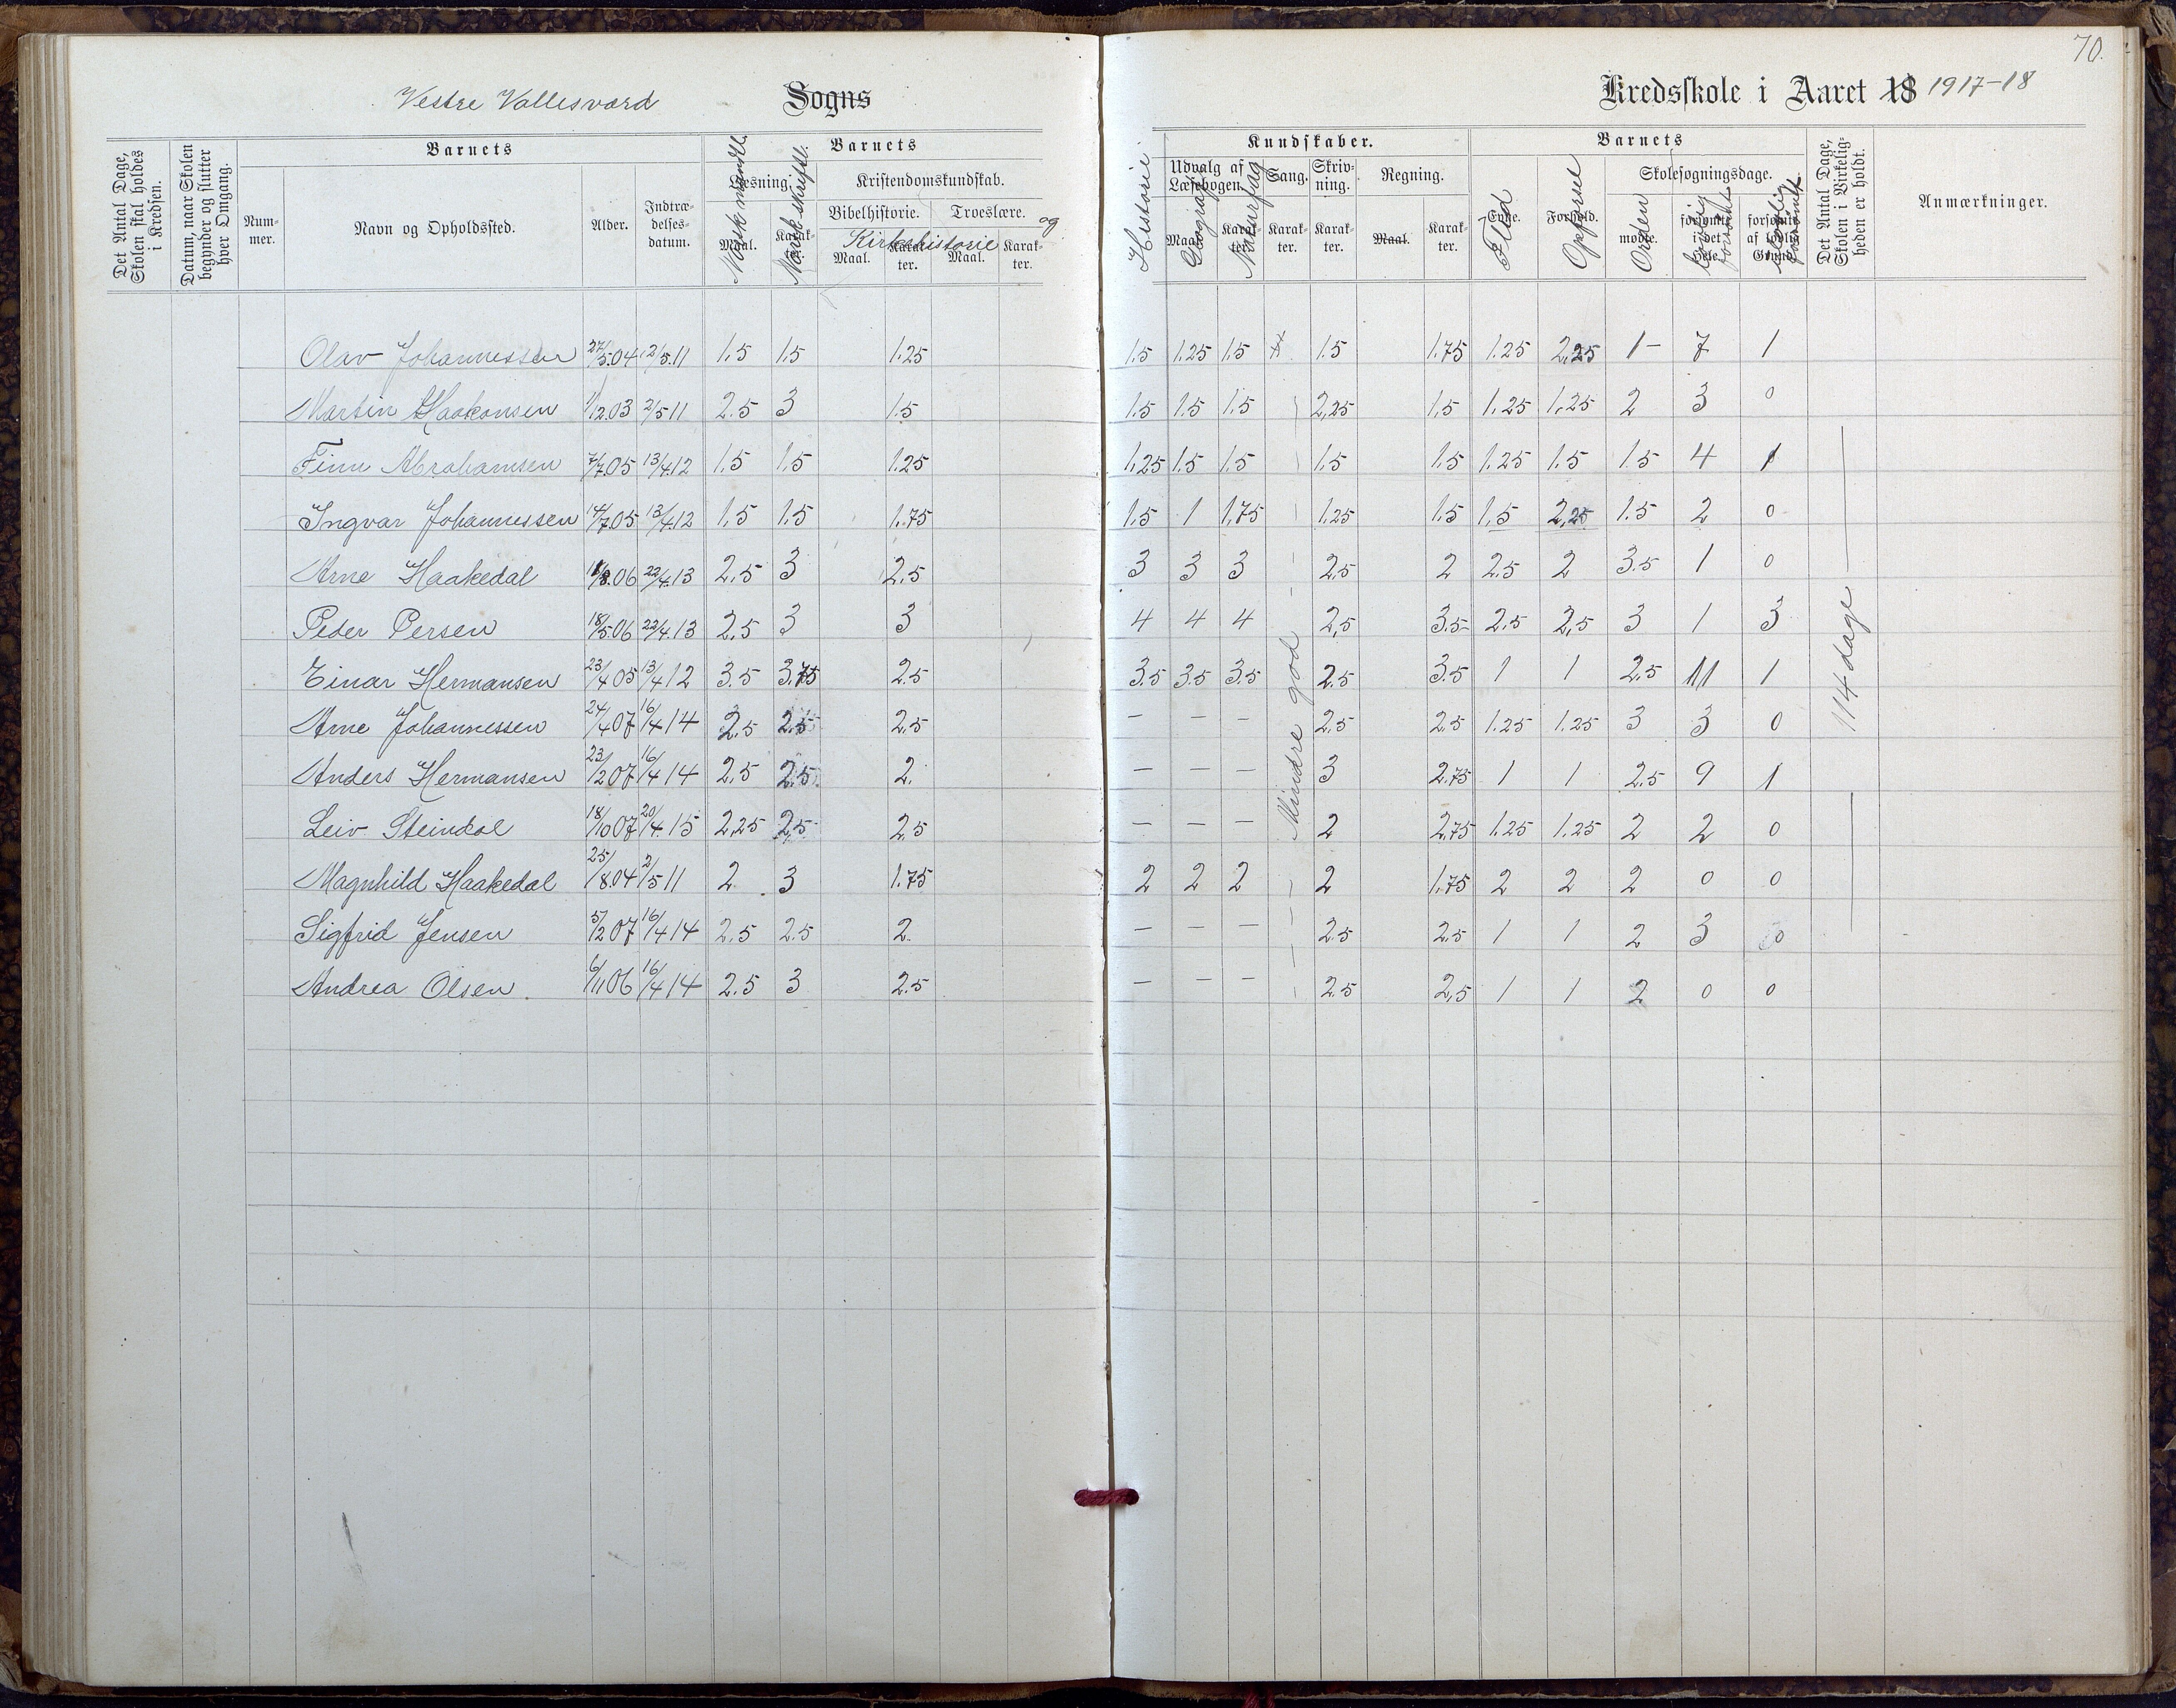 70.
Vestre Vallesværd Sogns Kredsskole i Aaret 18 1917-18
Det Antal Dage, Skolen skal holdes i Kredsen.
Datum, naar Skolen begynder og slutter hver Omgang.
Barnets
Num-mer.
Navn og Opholdssted.
Alder.
Indtræ-delses-datum.
Barnets
Læsning.
Maal.
Karak-ter.
Norsk mundtl.
Norsk skriftl.
Kristendomskundskab.
Bibelhistorie.
Troeslære.
og Kirkehistorie
Maal.
Karak-ter.
Maal.
Karak-ter.
Historie
Kundskaber.
Udvalg af Læsebogen.
Maal.
Karak-ter.
Geografi
Naturfag
Sang.
Karak-ter.
Skriv-ning.
Karak-ter.
Regning.
Maal.
Karak-ter.
Barnets
Evne.
Flid
Forhold.
Opførsel
Skolesøgningsdage.
mødte.
Orden
forsømte i det Hele.
forsømte af lovlig Grund.
Det Antal Dage, Skolen i Virkelig-heden er holdt.
Anmærkninger.
Olav Johannessen 27/5.04 2/5.11 1.5 1.5 1.25 1.5 1.25 1.5 1.5 1.75 1.25 2,25 1- 7 1
Martin Haakonsen 1/12.03 2/5 11 2.5 3 1.5 1.5 1.5 1.5 2,25 1.5 1.25 1.25 2 3 0
Finn Abrahamsen 7/7.05 13/4.12 1.5 1.5 1.25 1.25 1.5 1.5 1.5 1.5 1.25 1.5 1.5 4 1
Ingvar Johannessen 14/7.05 13/4.12 1.5 1.5 1.75 1.5 1 1.75 1.25 1.5 1.5 2,25 1.5 2 0
Arne Haakedal 1/8.06 22/4.13 2.5 3 2.5 3 3 3 2.5 2 2.5 2 3.5 1 0
Peder Persen 18/5.06 22/4.13 2.5 3 3 4 4 4 2,5 3.5 2.5 2,5 3 1 3
Einar Hermansen 23/4 05 13/4 12 3.5 3.75 2.5 3.5 3.5 3.5 2.5 3.5 1 1 2.5 11 1
Arne Johannessen 24/4 07 16/4 14 2.5 2.5 2.5 - - - 2.5 2.5 1.25 1.25 3 3 0
Anders Hermansen 23/2 07 16/4 14 2.5 2.5 2. - - - 3 2.75 1 1 2.5 9 1
Leiv Steindal 18/10 07 20/4 15 2,25 2,5 2.5 - - - 2 2.75 1.25 1.25 2 2 0
Magnhild Haakedal 25/8.04 2/5 11 2 3 1.75 2 2 2 2 1.75 2 2 2 0 0
Sigfrid Jensen 5/2 07 16/4 14 2.5 2.5 2. - - - 2.5 2.5 1 1 2 3 0
Andrea Olsen. 6/11 06 16/4 14 2.5 3 2.5 - - - 2.5 2,5 1 1 2 0 0
Mindre god
114 dage